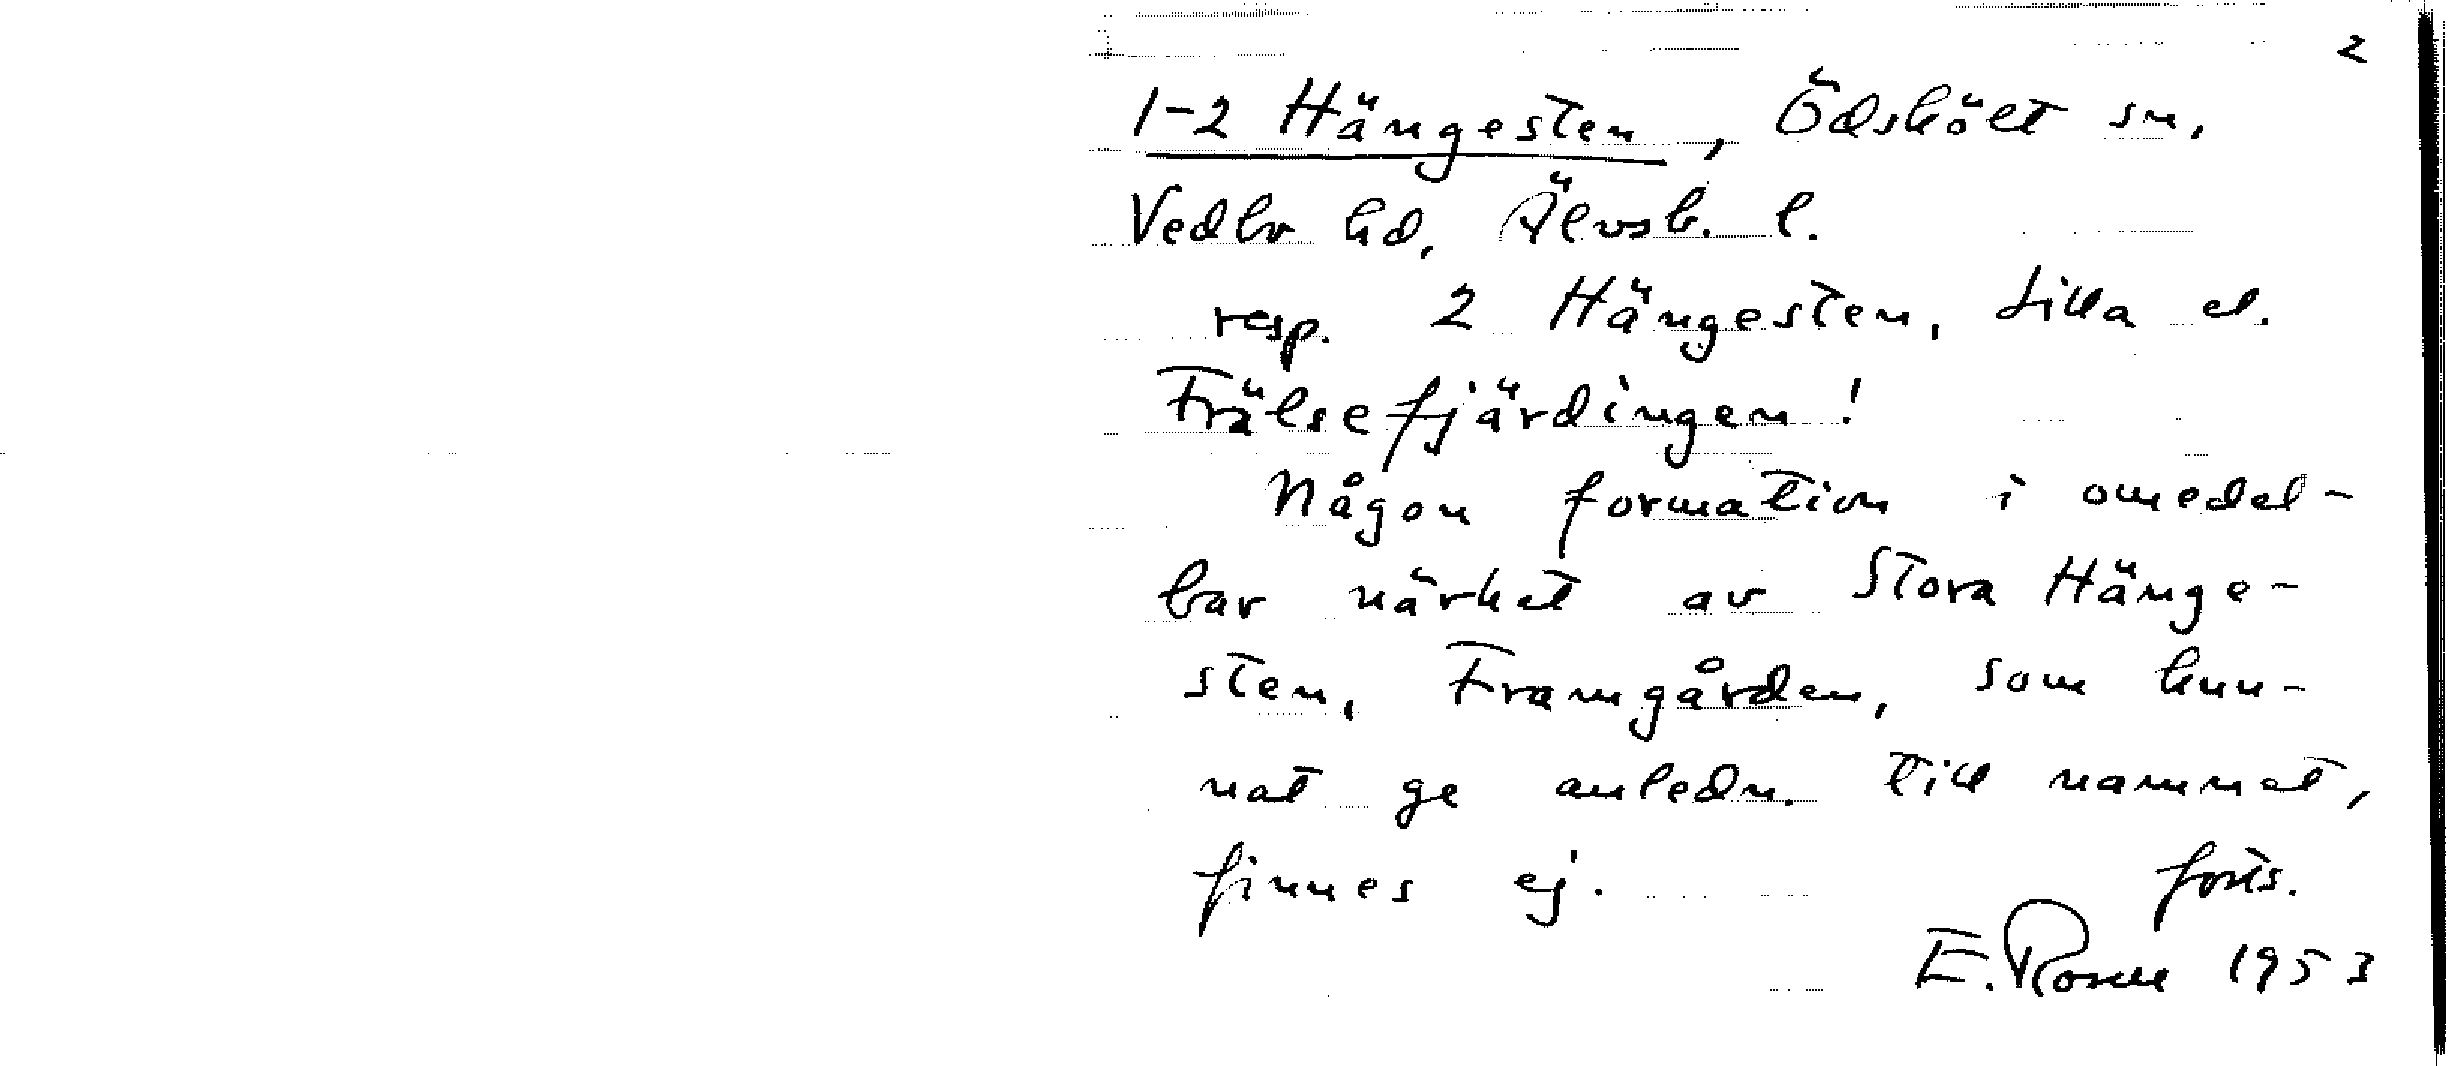 2
1-2 Hängesten, Ödskölt sn,
Vedbo hd, Älvsb. l.
resp. 2 Hängesten, Lilla el.
Frälsefjärdingen!
Någon formation i omedel-
bar närhet av Stora Hänge-
sten, Framgården, som kun-
nat ge anledn. till namnet,
finnes ej. forts.
E. Rosell 1953